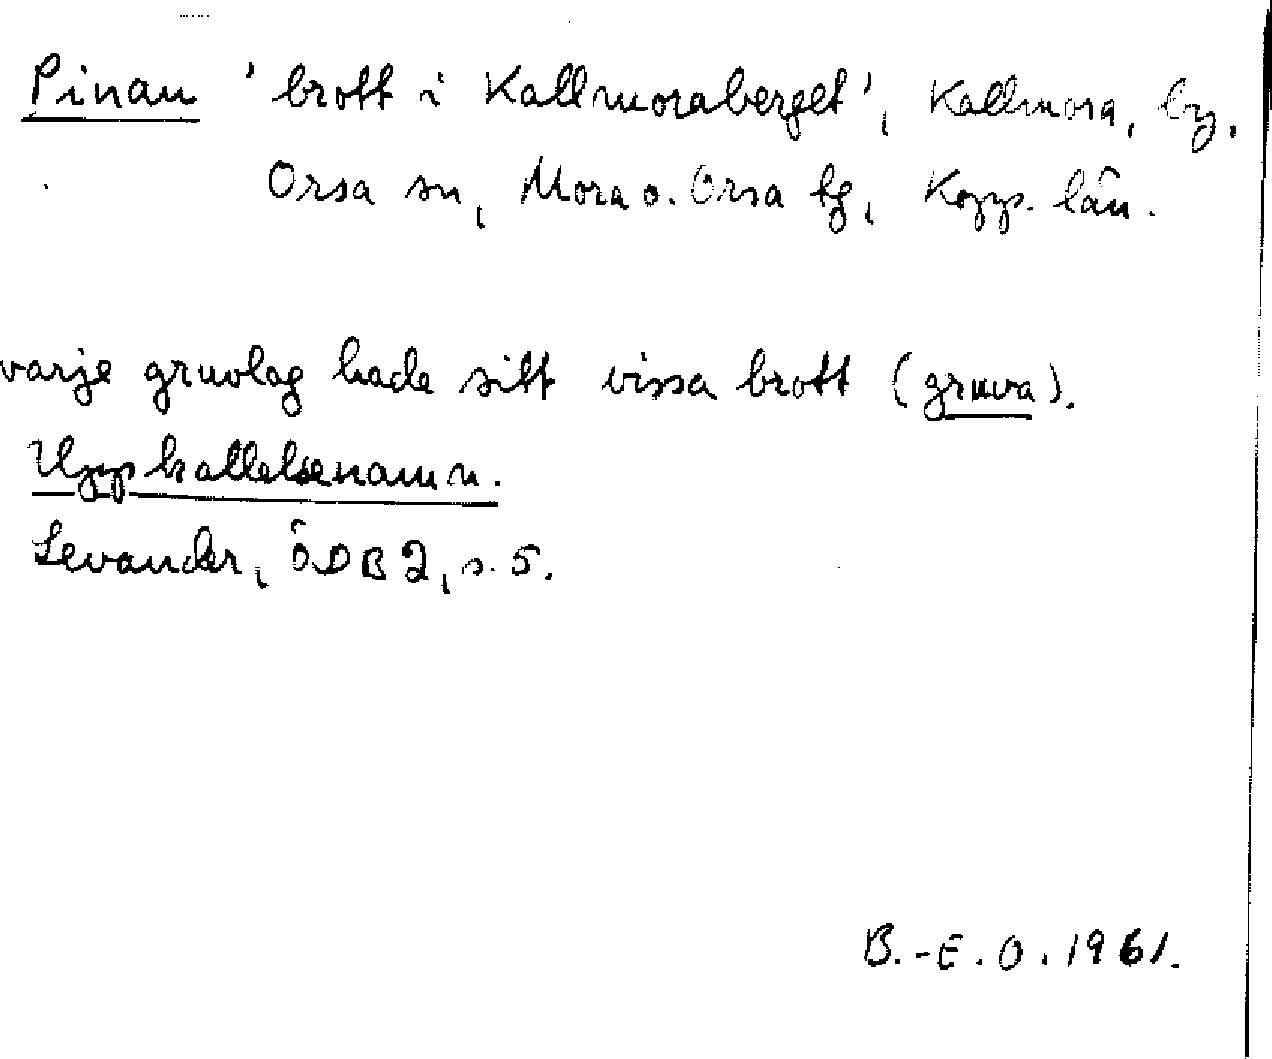 Pinan 'brott i Kallmoraberget', Kallmora, by,
Orsa sn, Mora o. Orsa tg, Kopp. län.
varje gruvlag hade sitt vissa brott (gruva).
Uppkallelsenamn.
Levander, ÖDB 2, s. 5.
B.-E. O. 1961.